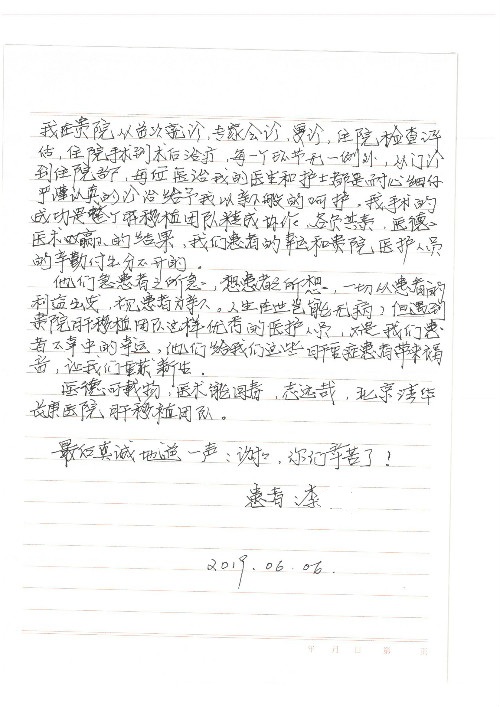 我在贵院从首次就诊、专家会诊、复诊、住院、检查评
估,住院手术到术后治疗,每一个环节无一例外,从门诊
到住院部,每位医治我的医生和护士都是耐心细仔
严谨认真的诊治给予我以亲人般的呵护。我手术的
成功是整个肝移植团队精诚协作、各负其责、医德
医术双赢的结果,我们患者的幸运和贵院医护人员
的辛勤付出分不开的。
他们急患者之所急、想患者之所想、一切从患者的
利益出发,视患者为亲人。人生在世岂能无病,但遇到
贵院肝移植团队这样优秀的医护人员,才是我们患
者不幸中的幸运,他们给我们这些肝重症患者带来福
音,让我们重获新生。
医德可载物,医术能回春,志远哉,北京清华
长庚医院肝移植团队。
最后真诚地说一声:谢谢,你们辛苦了!
患者:李
2019.06.06.